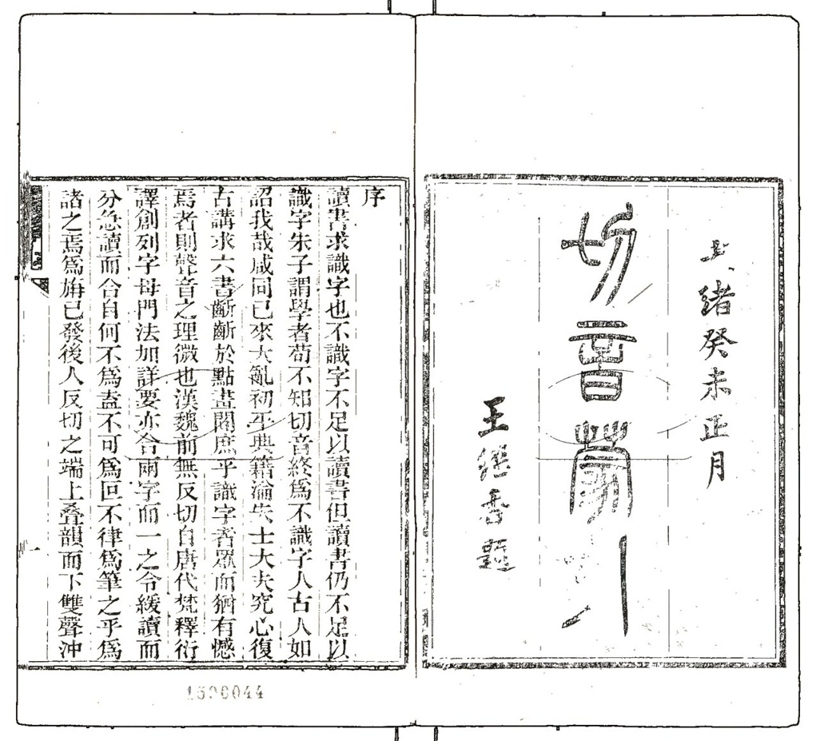 光緒癸未正月
切音蒙引
王繼香題
序
讀書求識字也不識字不足以讀書但讀書仍不足以
識字朱子謂學者苟不知切音終爲不識字人古人如
詔我哉咸同已來大亂初平典籍淪失士大夫究心復
古講求六書齗齗於點畫閒庶乎識字者眾而猶有憾
焉者則聲音之理微也漢魏前無反切自唐代梵釋衍
譯創列字母門法加詳要亦合兩字而一之令緩讀而
分急讀而合自何不爲盍不可爲叵不律爲筆之乎爲
諸之焉爲旃已發後人反切之端上叠韻而下雙聲沖
一
1596044